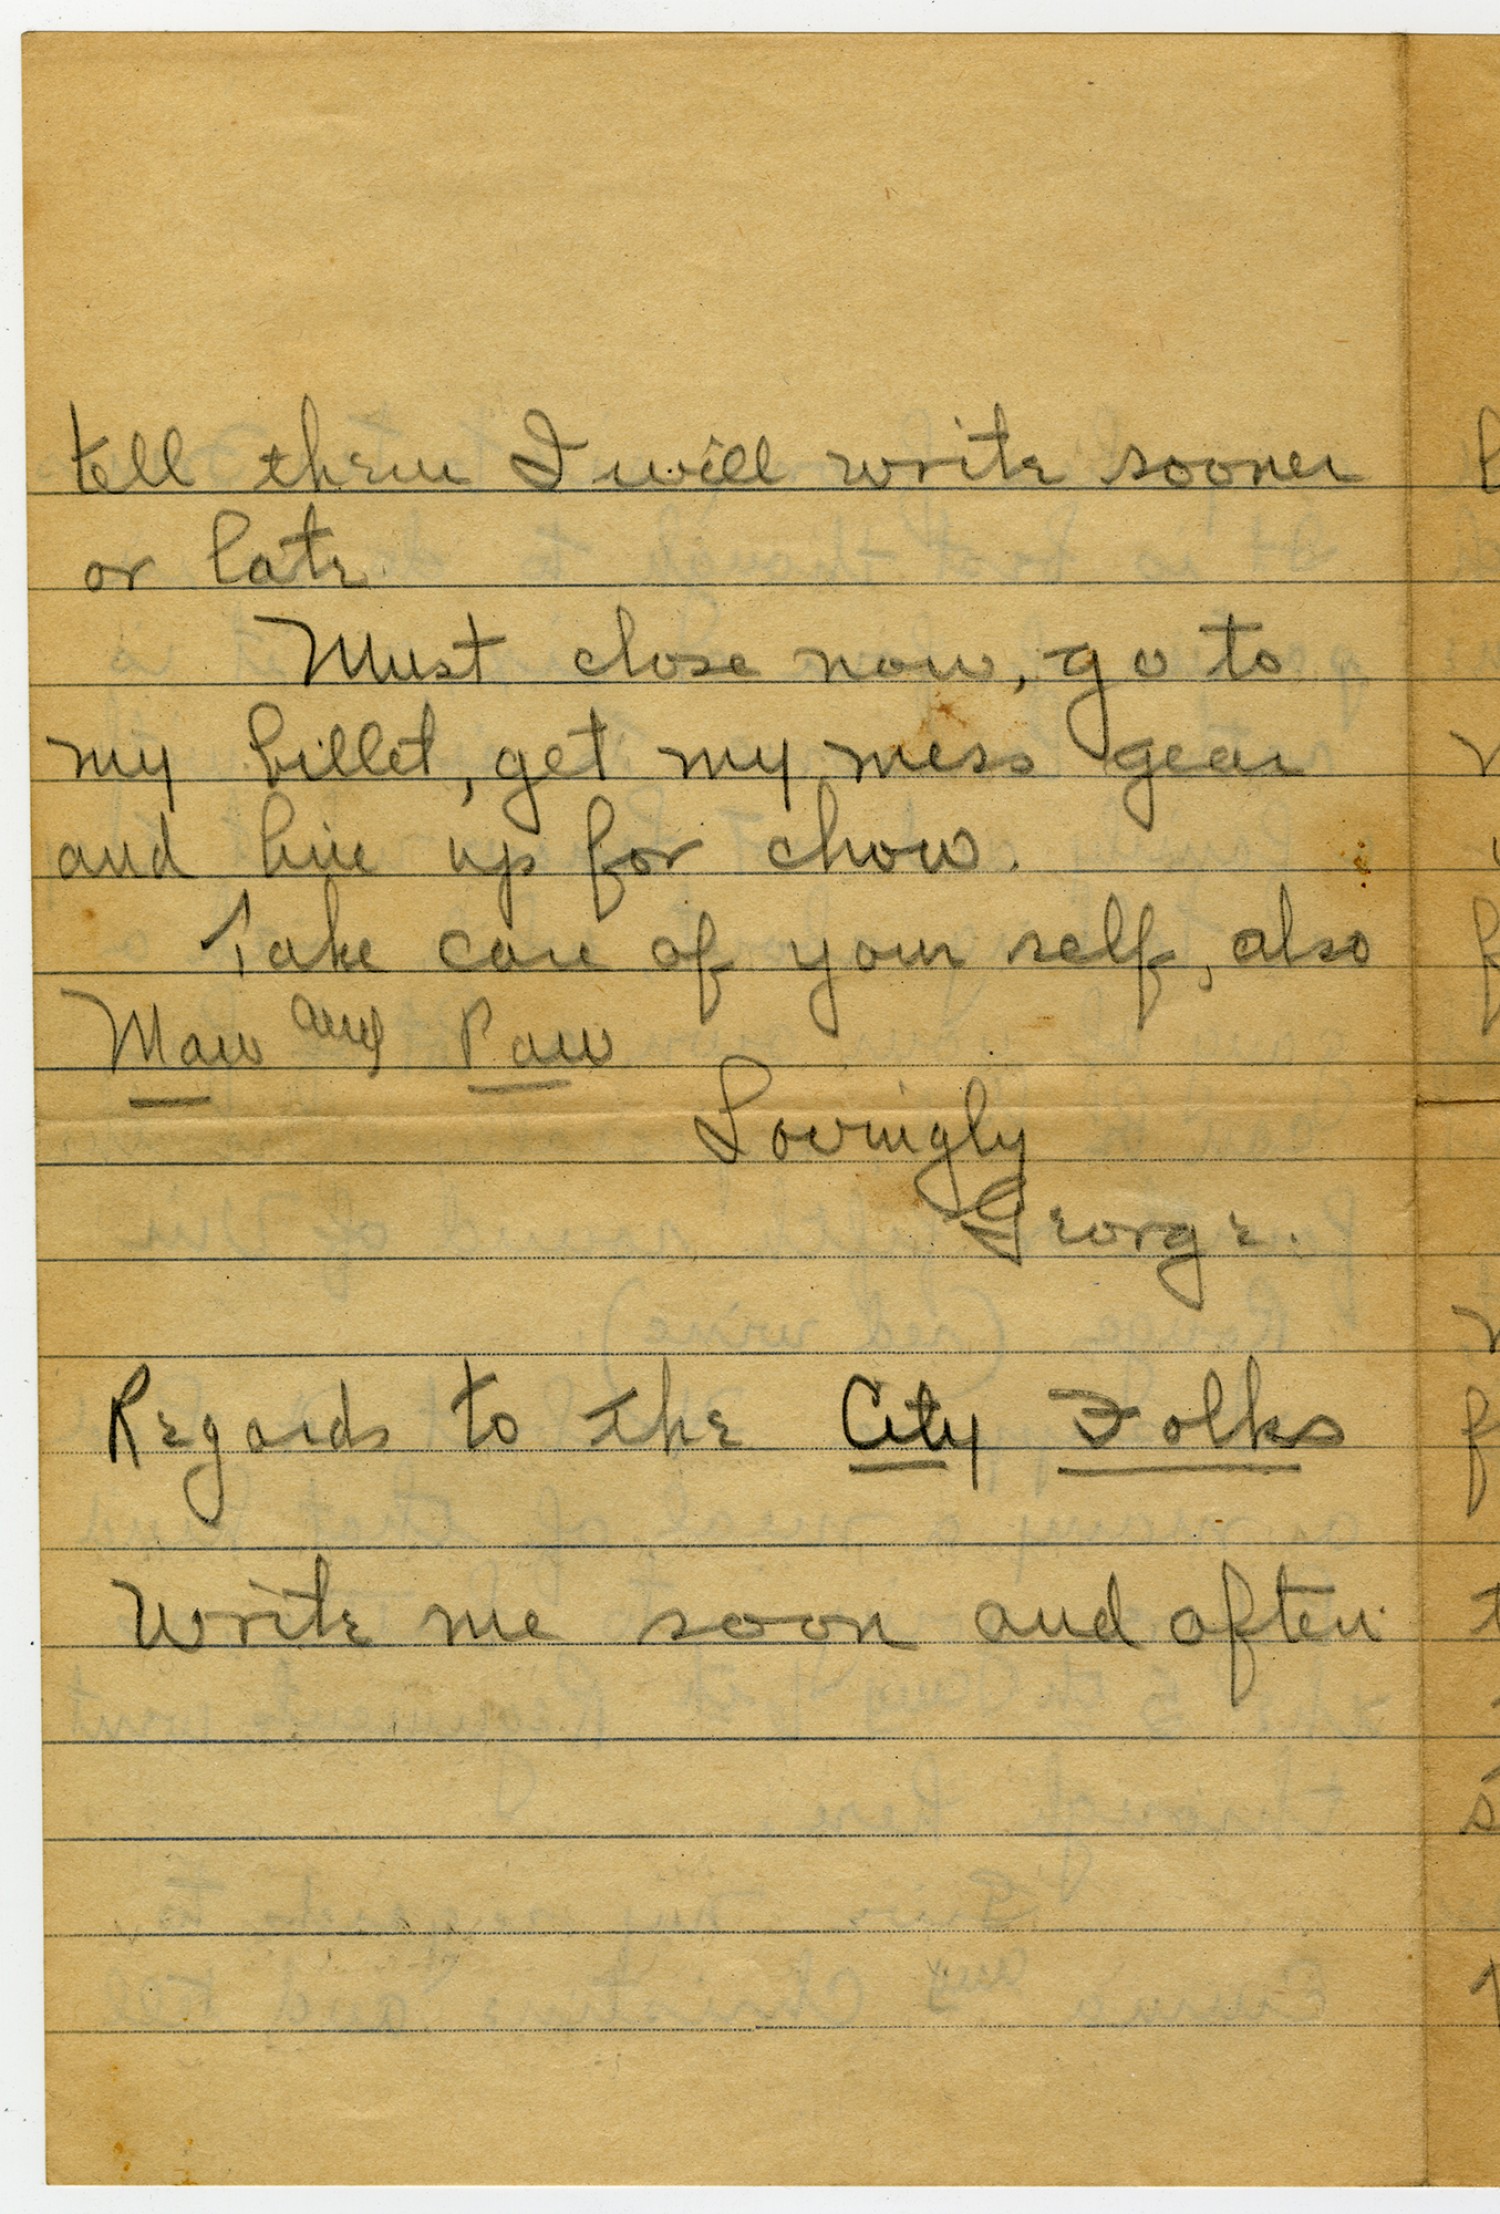 tell them I will write sooner
or late.
Must close now, go to
my billet, get my mess gear
and line up for chow.
Take care of your self, also
Maw and Paw
Lovingly
George.
Regards to the City Folks
Write me soon and often.